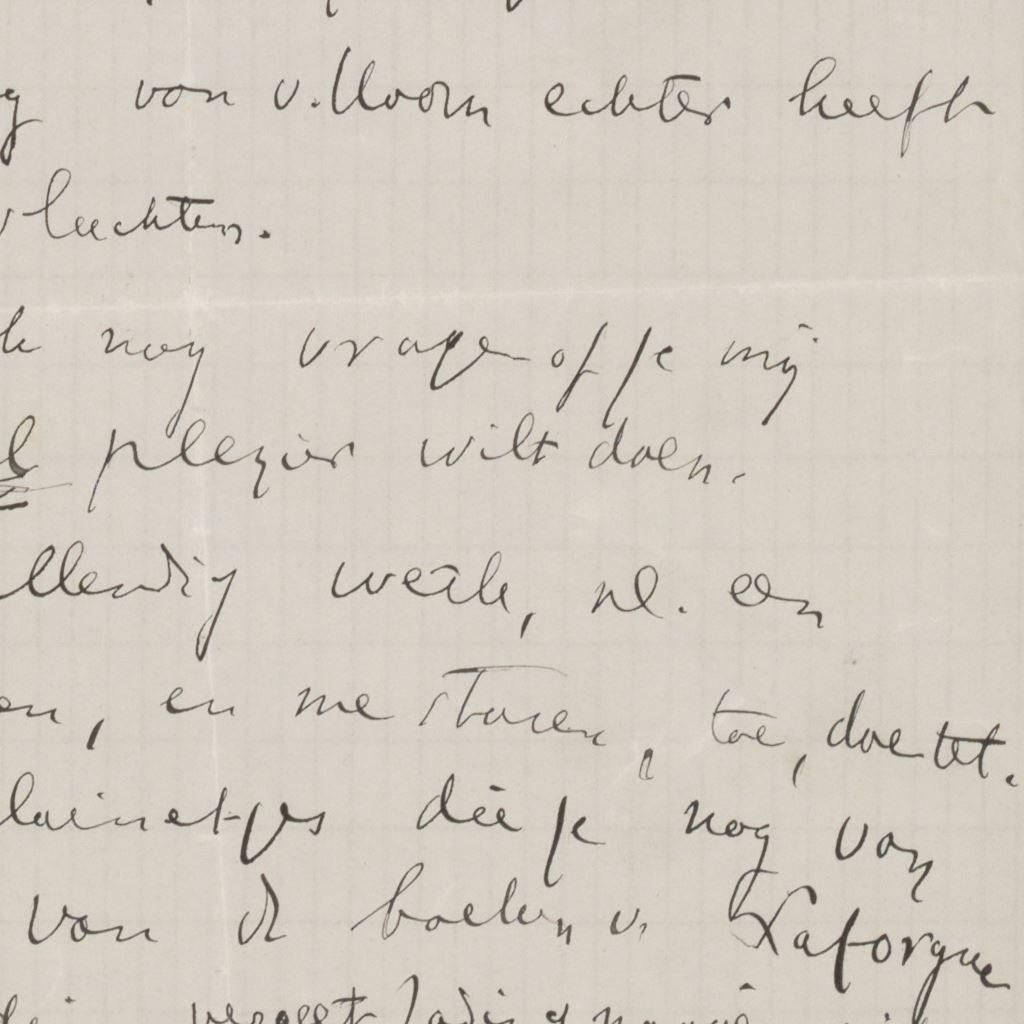 van v. Hoorn echter heeft
vluchten.
nog vragen of je mij
plezier wilt doen.
ellendig werk, nl. een
en, en me sturen, toe, doe het.
kleinetjes die je nog van
van de boeken v. Laforgue
vergeet